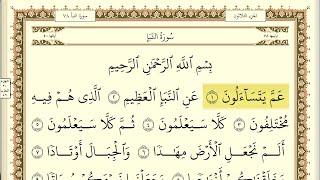 الجزء الثلاثون
سورة النبأ ٧٨
سُورَةُ النَّبَإِ
بِسْمِ ٱللَّهِ ٱلرَّحْمَٰنِ ٱلرَّحِيمِ
عَمَّ يَتَسَآءَلُونَ ١ عَنِ ٱلنَّبَإِ ٱلْعَظِيمِ ٢ ٱلَّذِى هُمْ فِيهِ
مُخْتَلِفُونَ ٣ كَلَّا سَيَعْلَمُونَ ٤ ثُمَّ كَلَّا سَيَعْلَمُونَ ٥
أَلَمْ نَجْعَلِ ٱلْأَرْضَ مِهَٰدًا ٦ وَٱلْجِبَالَ أَوْتَادًا ٧